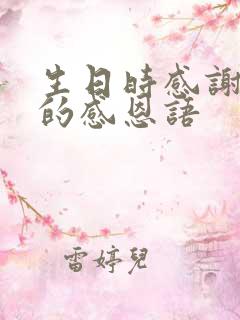 生日時感謝
的感恩語
雷婷兒